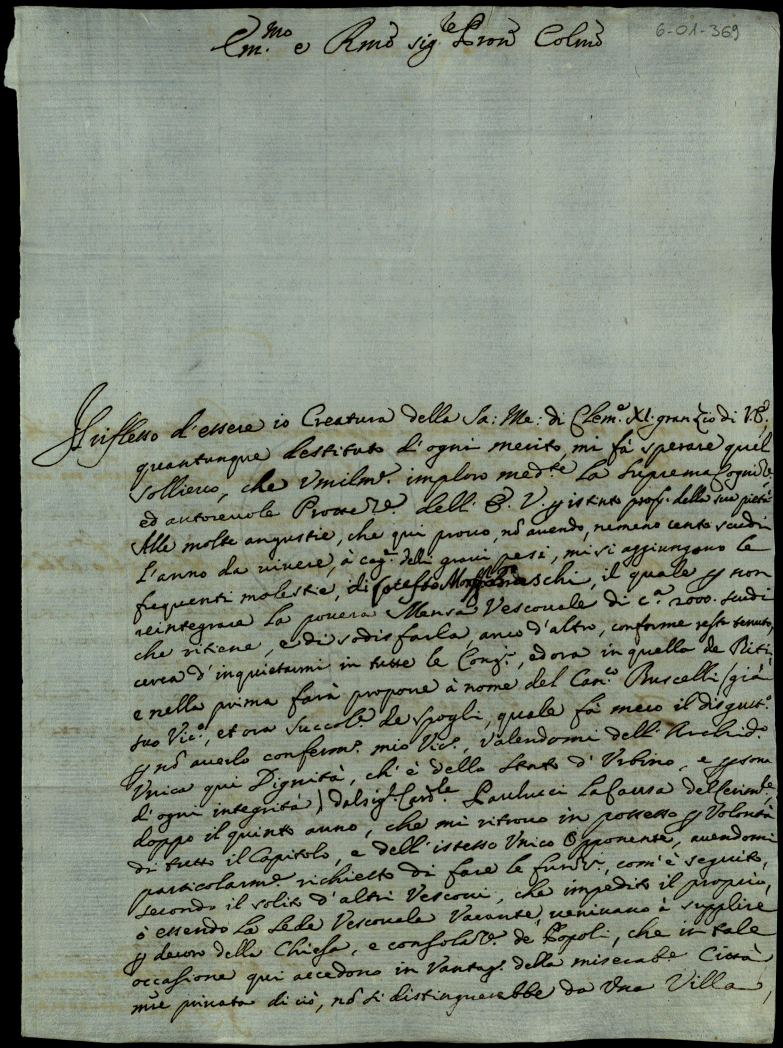 6-01-369
Em.mo e Rmo sig.re Pron Colmo
Il riflesso d'essere io Creatura della Sa: Me: di Clem.e XI. gran Zio di V.E.
quantunque destituto d'ogni merito, mi fà sperare quel
sollievo, che Vmilm.e imploro med.te La Suprema
ed autorevole Protez.e dell'E. V. p istinto della sua pietà
Alle molte angustie, che qui provo, nõ avendo, nemeno cento scudi
L'anno da vivere, à cag.e delli gravi pesi, mi si aggiungono le
frequenti molestie, di Cotesto il quale p non
reintegrare La povera Mensa Vescovale di c.a 2000. scudi
che ritiene, e di sodisfarla anco d'altro, conforme resta tenuto,
cerca d'inquietarmi in tutte le Cong.i, ed ora in quella de Riti,
e nella prima farà proporre à nome del Can.co Buscelli (già
suo Vic.o, et ora Succoll.e de spogli, quale fà meco il disgust.o
p nõ averlo conferm.o mio Vic.o, Valendomi dell'Archid.o
Vnica qui Dignità, ch'è dello Stato d'Vrbino, e psona
d'ogni integrità) dal sig.r Card.le Paulucci La Causa del
doppo il quinto anno, che mi ritrovo in possesso p Volontà
di tutto il Capitolo, e dell'istesso Vnico Opponente, avendomi
particolarm.e richiesto di fare le funz.i, com'è seguito,
secondo il solito d'altri Vescovi, che impedito il proprio,
ò essendo La Sede Vescovale Vacante, venivano à supplire
p decoro della Chiesa, e consolaz.e de Popoli, che in tale
occasione qui accedono in Vantag.o della miserabe Città
mẽ privata di ciò, nõ si distinguerebbe da Vna Villa,